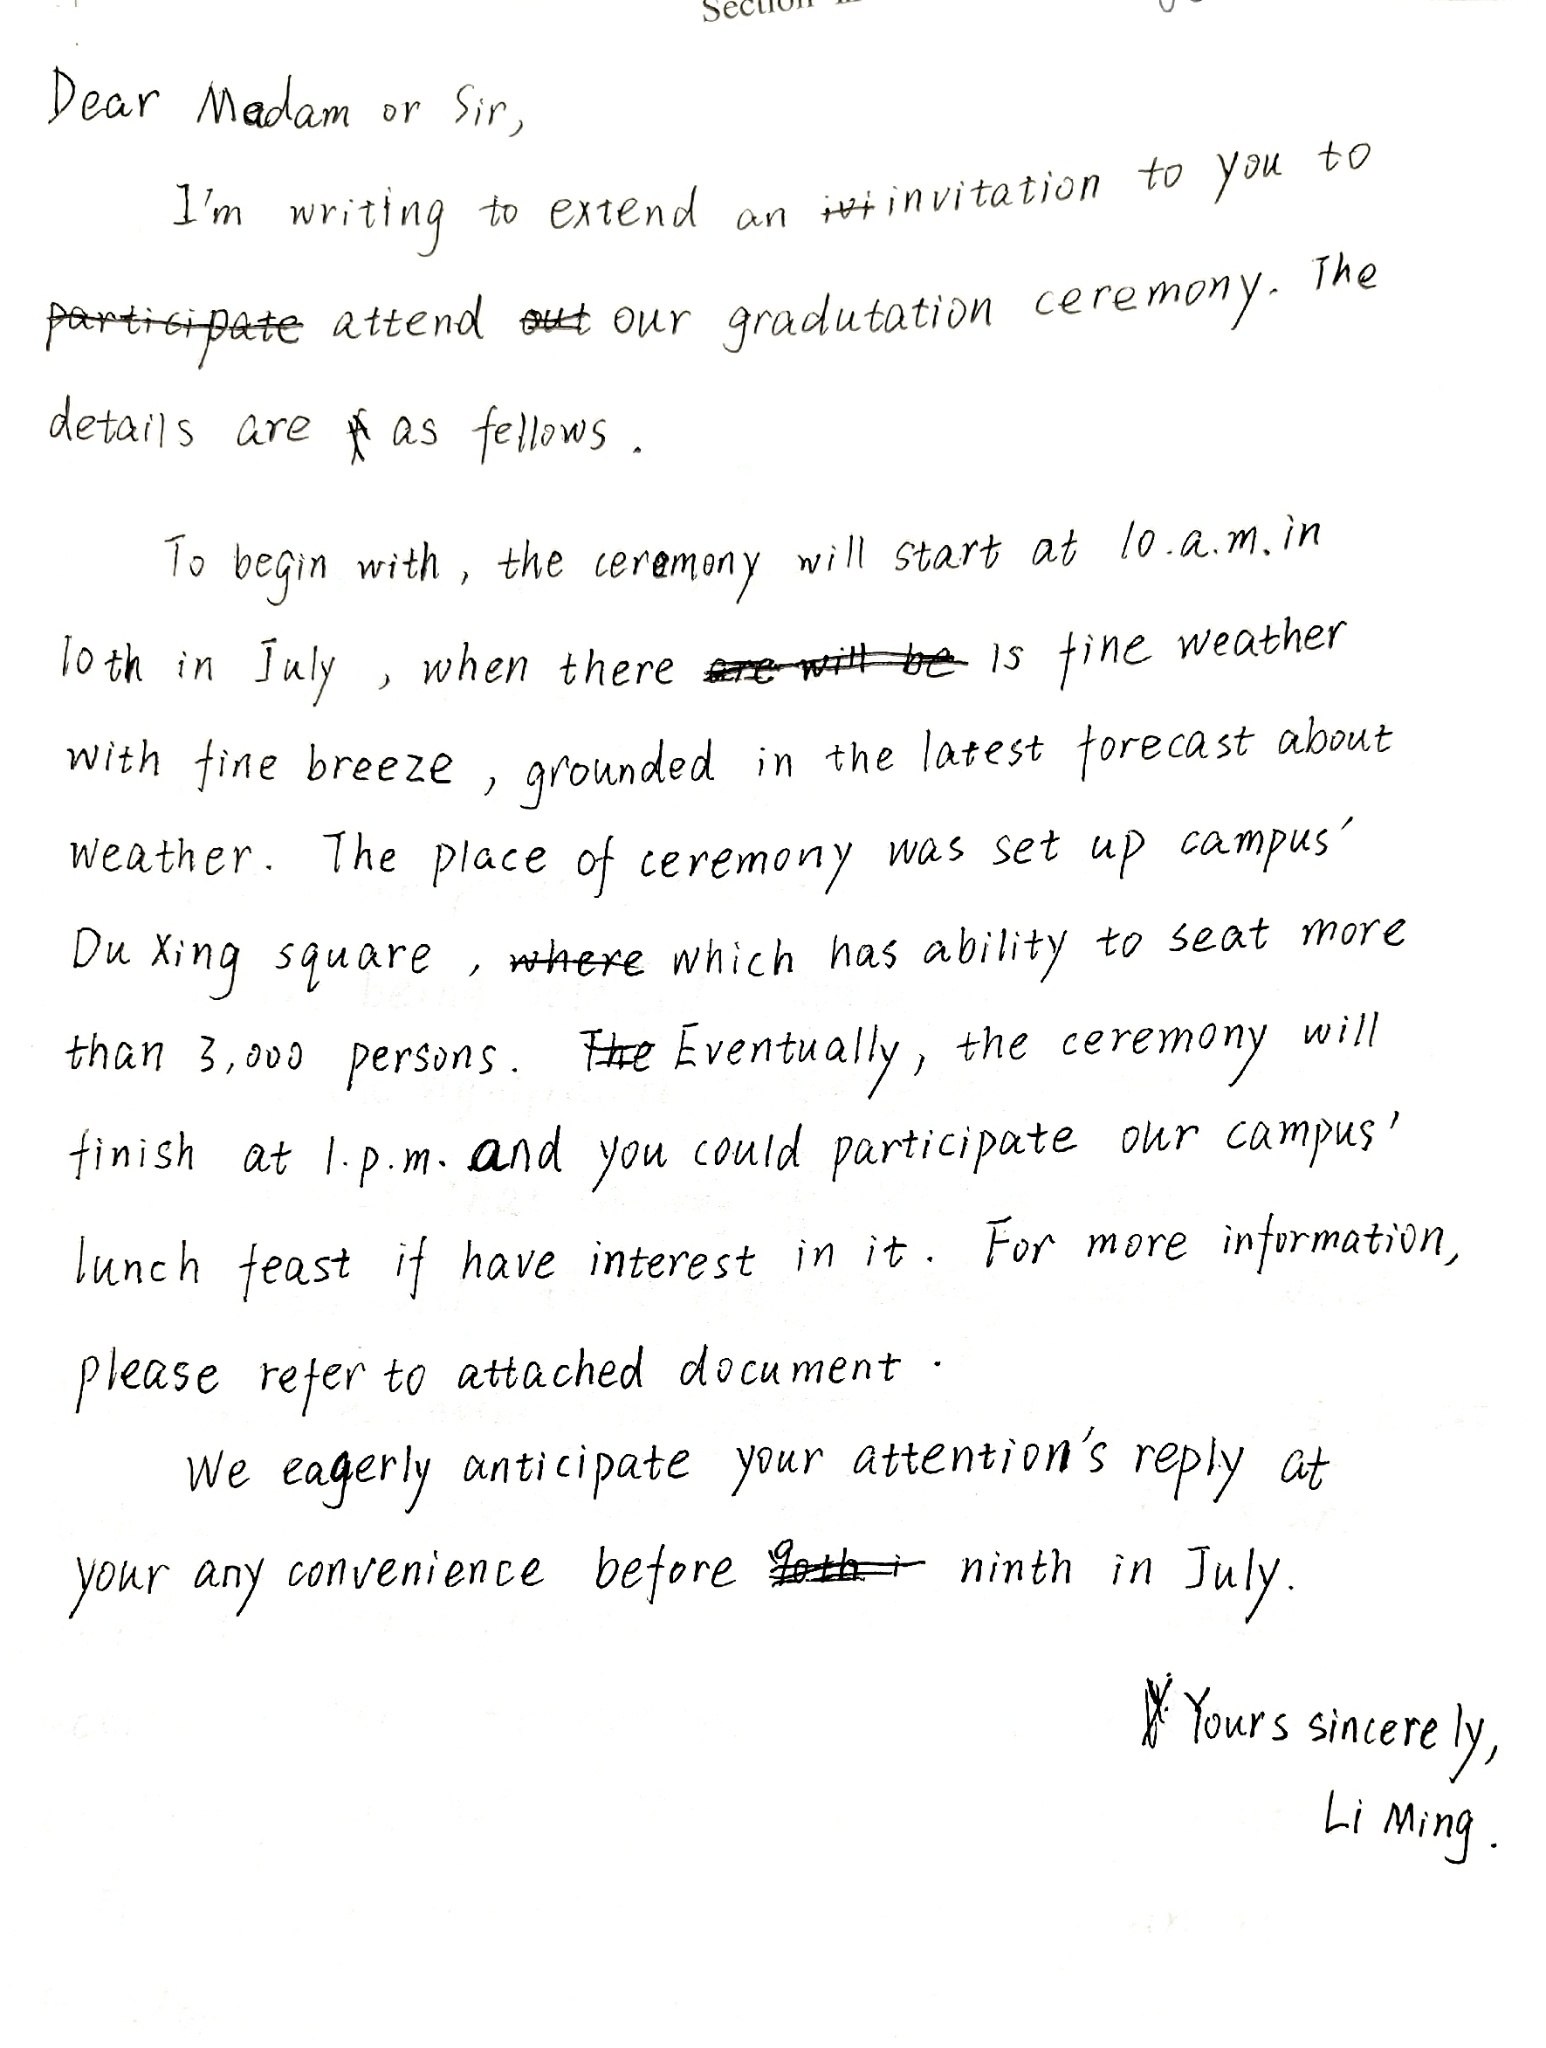 Section
Dear Madam or Sir,
I'm writing to extend an ivi invitation to you to
participate attend out our gradutation ceremony. The
details are as fellows.
To begin with, the ceremony will start at 10.a.m. in
10th in July, when there are will be is fine weather
with fine breeze, grounded in the latest forecast about
weather. The place of ceremony was set up campus'
Du Xing square, where which has ability to seat more
than 3,000 persons. The Eventually, the ceremony will
finish at 1.p.m. and you could participate our campus'
lunch feast if have interest in it. For more information,
please refer to attached document.
We eagerly anticipate your attention's reply at
your any convenience before ninth in July.
Yours sincerely,
Li Ming.